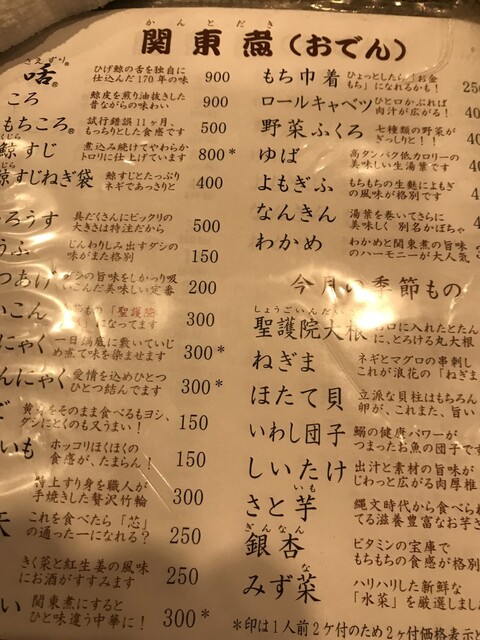 かんとだき
関東煮(おでん)
さえずり®
咶 ひげ鯨の舌を独自に 900
仕込んだ170年の味
ころ 鯨皮を煎り油抜きした 900
昔ながらの味わい
もちころ® 試行錯誤11ヶ月、 500
もっちりとした食感です
鯨すじ 煮込み続けてやわらか 800*
トロリに仕上げています
鯨すじねぎ袋 鯨すじとたっぷり 400
ネギであっさりと
ろうす 具だくさんにビックリの 500
大きさは特注だから
うふ じんわりしみ出すダシの 150
味がまた格別
つあげ ダシの旨味をしっかり吸 200
いこんだ美味しい定番
いこん もの「聖護院 300
」になってます
にゃく 一日鍋底に敷いていじ 300*
め煮て味を染ませます
んにゃく 愛情を込めひとつ 300*
ひとつ結んでます
ご 黄身をそのまま食べるもヨシ、 150
ダシにとくのもう旨い!
いも ホッコリほくほくの 150
食感が、たまらん!
上すり身を職人が 300
手焼きした贅沢竹輪
天 これを食べたら「芯」 250
の通った一になれる?
きく菜と紅生姜の風味 250
にお酒がすすみます
い 関東煮にすると 300*
ひと味違う中華に!
もち巾着 ひょっとしたら「お金
もち」になれるかも! 250
ロールキャベツ ひと口かぶれば
肉汁が広がる! 40
野菜ふくろ 七種類の野菜が
ぎっしりと!!
ゆば 高タンパク低カロリーの
美味しい生湯葉です
よもぎふ もちもちの生麩によもぎ
の風味が格別です
なんきん 湯葉を巻いてさらに
美味しく 別名かぼちゃ
わかめ わかめと関東煮の旨味
のハーモニーが大人気
今月の季節もの
しょうごいんだい
聖護院大根 口に入れたとたん
に、とろける丸大根
ねぎま ネギとマグロの串刺し
これが浪花の「ねぎま
ほたて貝 立派な貝柱はもちろん
卵が、これまた、旨い
いわし団子 鰯の健康パワーが
つまったお魚の団子です
しいたけ 出汁と素材の旨味が
じわっと広がる肉厚椎
さと芋 縄文時代から食べられ
てる滋養豊富なお芋さ
ぎんなん
銀杏 ビタミンの宝庫で
もちもちの食感が格別
みず菜 ハリハリした新鮮な
「水菜」を厳選しました
*印は1人前2ケ付のため2ヶ付価格表示と